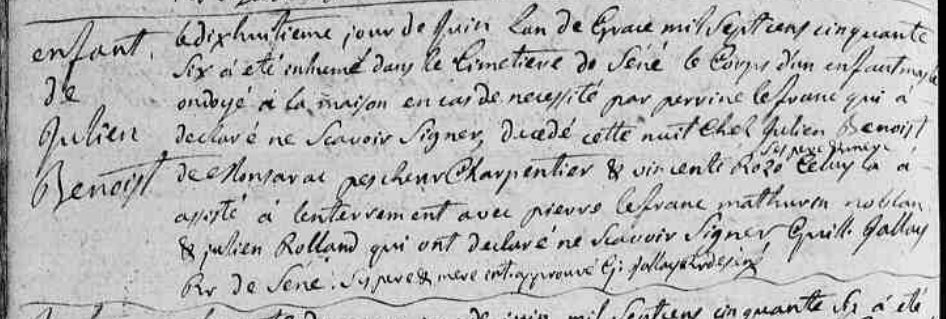 enfant
de
Julien
Benoist
Le dixhuitieme jour de Juin Lan de Grace mil Septcens cinquante
Six a eté inhumé dans le Cimetiere de Séné le Corps dun enfant male
ondoyé a la maison en cas de necessité par perrine lefranc qui à
declaré ne Scavoir Signer, decedé cette nuit Chez Julien Benoist
Ses pere & mere
de Monsarac pescheur Charpentier & vincente Rozo Celuy la à
assisté à lenterrement avec pierre lefranc mathurin noblan
& julien Rolland qui ont declaré ne Scavoir Signer Guill. Jallay
Rr de Sené. Ses pere & mere int. approuvé G: Jallay Rr de Séné
mil Septcens cinquante Six à eté